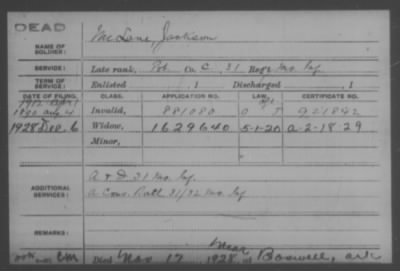 DEAD
NAME OF SOLDIER: McLane, Jackson
SERVICE: Late rank, Pvt. Co. C, 31 Reg't Mo. Inf.
TERM OF SERVICE: Enlisted , 1 Discharged , 1
DATE OF FILING. CLASS. APPLICATION NO. LAW. CERTIFICATE NO.
1890 Aug 4 Invalid, 881080 921842
1928 Dec. 6 Widow, 1629640 5-1-20 a 2-18-29
Minor,
ADDITIONAL SERVICES: A & D. 31 Mo. Inf.
a Cons. Batt 31/32 Mo. Inf
REMARKS:
Died Nov 17, 1928, near Boswell, Ark